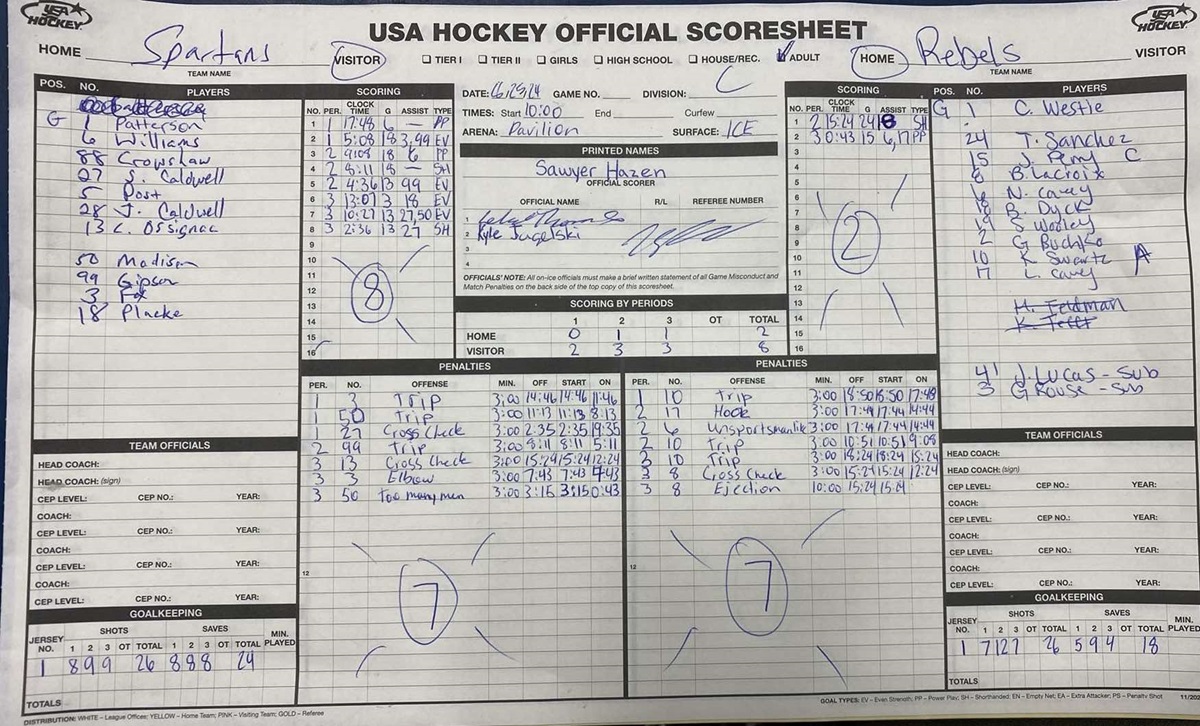 USA HOCKEY
USA HOCKEY OFFICIAL SCORESHEET
USA HOCKEY
HOME Spartans VISITOR ☐ TIER I ☐ TIER II ☐ GIRLS ☐ HIGH SCHOOL ☐ HOUSE/REC. ☑ ADULT HOME Rebels VISITOR
TEAM NAME TEAM NAME
POS. NO. PLAYERS
G 1 Patterson
6 Williams
88 Crowshaw
27 S. Caldwell
5 Post
28 J. Caldwell
13 C. Ossignac
50 Madison
99 Gipson
3 Fox
18 Placke
SCORING
NO. PER. CLOCK TIME G ASSIST TYPE
1 1 17:48 6 — PP
2 1 5:08 18 3,99 EV
3 2 9:08 18 6 PP
4 2 8:11 18 — SH
5 2 4:36 13 99 EV
6 3 13:07 3 18 EV
7 3 10:27 13 27,50 EV
8 3 2:36 13 27 SH
9
10
11
12
13
14
15
16
8
DATE: 6/23/24 GAME NO. DIVISION: C
TIMES: Start 10:00 End Curfew
ARENA: Pavilion SURFACE: ICE
PRINTED NAMES
Sawyer Hazen
OFFICIAL SCORER
OFFICIAL NAME R/L REFEREE NUMBER
1
2 Kyle Jugelski
3
4
OFFICIALS' NOTE: All on-ice officials must make a brief written statement of all Game Misconduct and
Match Penalties on the back side of the top copy of this scoresheet.
SCORING BY PERIODS
1 2 3 OT TOTAL
HOME 0 1 1 2
VISITOR 2 3 3 8
SCORING
NO. PER. CLOCK TIME G ASSIST TYPE
1 2 15:24 24 8 SH
2 3 0:43 15 6,17 PP
3
4
5
6
7
8
9
10
11
12
13
14
15
16
2
POS. NO. PLAYERS
G 1 C. Westle
24 T. Sanchez
15 J. Perry C
8 B. Lacroix
6 N. Carey
18 B. Dyck
19 S Worley
2 G Buchko
10 K Swartz A
17 L. Carey
H. Feldman
K Tefft
41 J. Lucas - Sub
3 G Rouse - Sub
PENALTIES
PER. NO. OFFENSE MIN. OFF START ON
1 3 Trip 3:00 14:46 14:46 11:46
1 50 Trip 3:00 11:13 11:13 8:13
1 27 Cross Check 3:00 2:35 2:35 19:35
2 99 Trip 3:00 8:11 8:11 5:11
3 13 Cross Check 3:00 15:24 15:24 12:24
3 3 Elbow 3:00 7:43 7:43 4:43
3 50 Too many men 3:00 3:15 3:15 0:43
12
7
PENALTIES
PER. NO. OFFENSE MIN. OFF START ON
1 10 Trip 3:00 18:50 18:50 17:48
2 17 Hook 3:00 17:44 17:44 14:44
2 6 Unsportsmanlike 3:00 17:44 17:44 14:44
2 10 Trip 3:00 10:51 10:51 9:08
3 10 Trip 3:00 18:24 18:24 15:24
3 8 Cross Check 3:00 15:24 15:24 12:24
3 8 Ejection 10:00 15:24 15:24
12
7
TEAM OFFICIALS
HEAD COACH:
HEAD COACH: (sign)
CEP LEVEL: CEP NO.: YEAR:
COACH:
CEP LEVEL: CEP NO.: YEAR:
COACH:
CEP LEVEL: CEP NO.: YEAR:
COACH:
CEP LEVEL: CEP NO.: YEAR:
GOALKEEPING
JERSEY NO. SHOTS SAVES MIN. PLAYED
1 2 3 OT TOTAL 1 2 3 OT TOTAL
1 8 9 9 26 8 8 8 24
TOTALS
TEAM OFFICIALS
HEAD COACH:
HEAD COACH: (sign)
CEP LEVEL: CEP NO.: YEAR:
COACH:
CEP LEVEL: CEP NO.: YEAR:
COACH:
CEP LEVEL: CEP NO.: YEAR:
COACH:
CEP LEVEL: CEP NO.: YEAR:
GOALKEEPING
JERSEY NO. SHOTS SAVES MIN. PLAYED
1 2 3 OT TOTAL 1 2 3 OT TOTAL
1 7 12 7 26 5 9 4 18
TOTALS
GOAL TYPES: EV – Even Strength; PP – Power Play; SH – Shorthanded; EN – Empty Net; EA – Extra Attacker; PS – Penalty Shot
DISTRIBUTION: WHITE – League Offices; YELLOW – Home Team; PINK – Visiting Team; GOLD – Referee